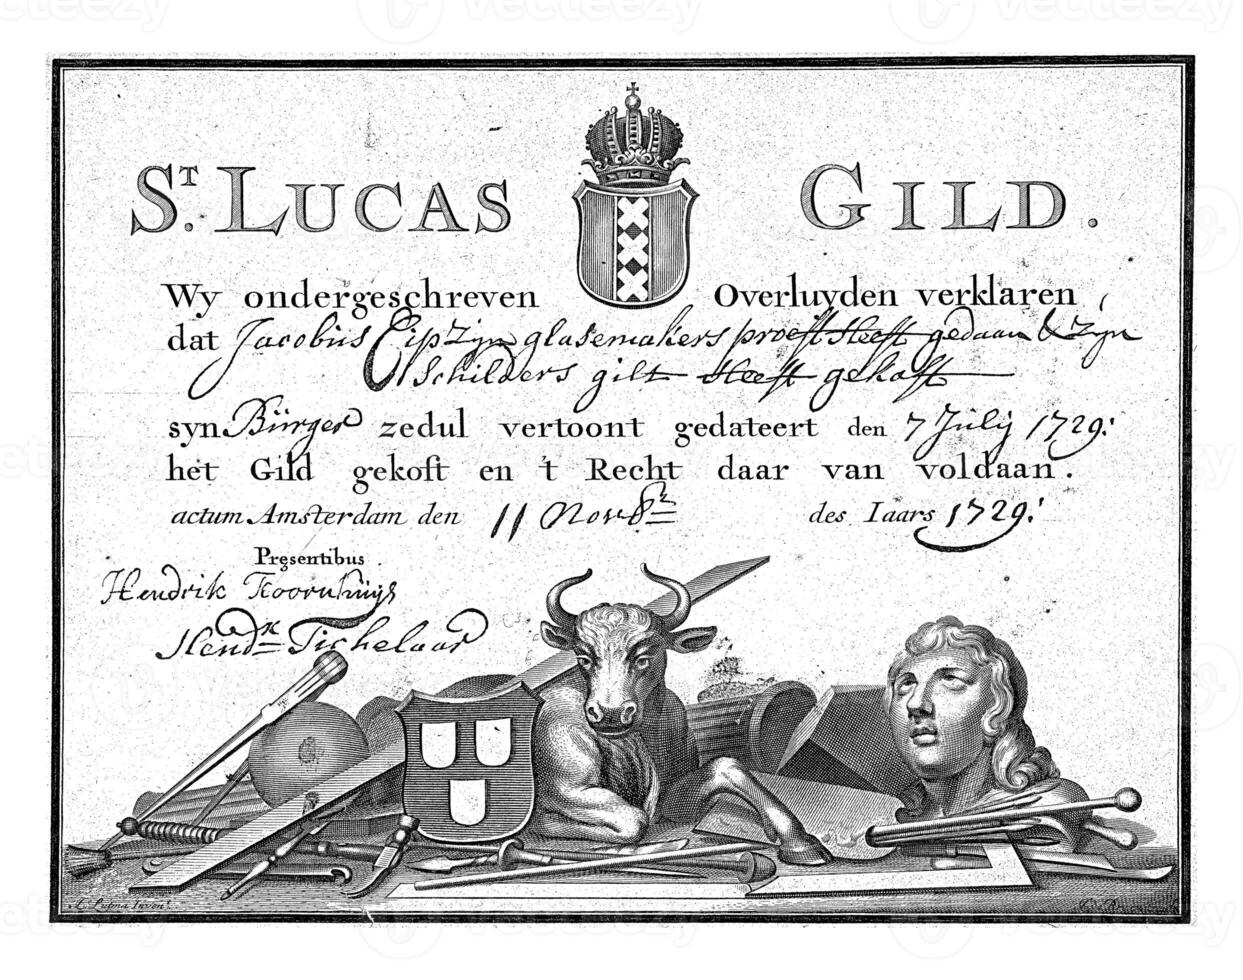 ST. LUCAS GILD.
Wy ondergeschreven Overluyden verklaren
dat Jacobus zyn glasemakers proeft Heeft gedaan & zyn
Schilders gilt Heeft gekoft
syn Bürger zedul vertoont gedateert den 7 Julij 1729:
het Gild gekoft en 't Recht daar van voldaan.
actum Amsterdam den 11 Novbr des Iaars 1729:
Præsentibus
Hendrik Koornhuijs
Hendk Tichelaar
Lutma Invent